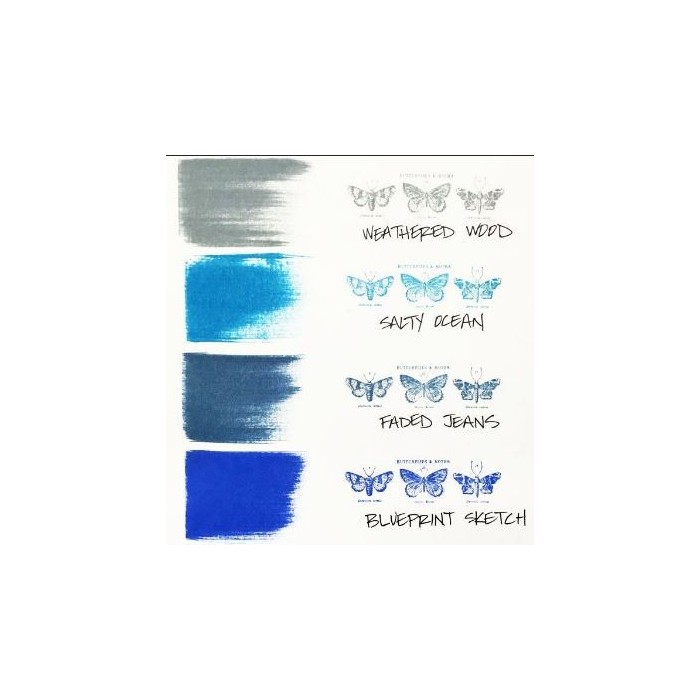 BUTTERFLIES & MOTHS
WEATHERED WOOD
BUTTERFLIES & MOTHS
SALTY OCEAN
BUTTERFLIES & MOTHS
FADED JEANS
BUTTERFLIES & MOTHS
BLUEPRINT SKETCH